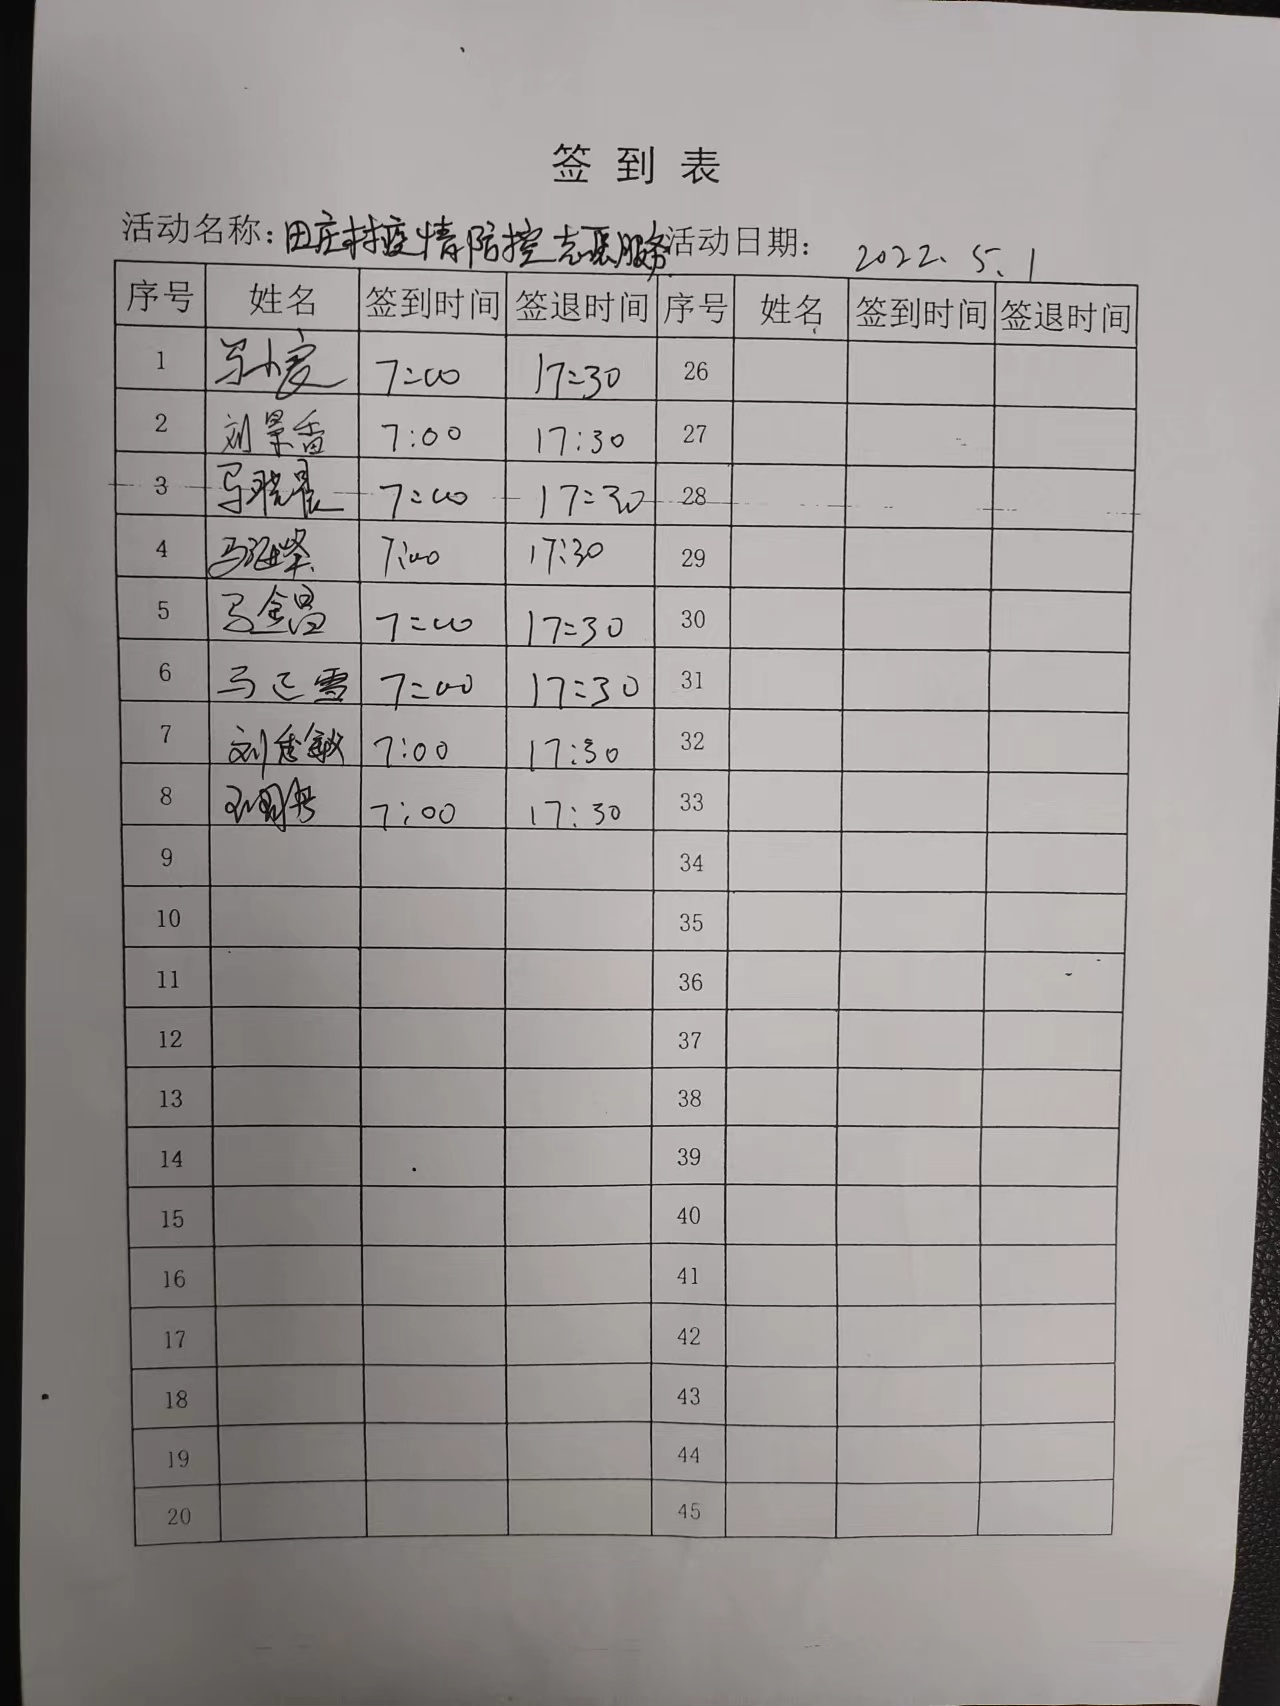 签到表
活动名称：田庄村疫情防控志愿服务 活动日期： 2022.5.1
序号 姓名 签到时间 签退时间 序号 姓名 签到时间 签退时间
1 马小 7:00 17:30 26
2 刘景香 7:00 17:30 27
3 马晓晨 7:00 17:30 28
4 马 7:00 17:30 29
5 马金昌 7:00 17:30 30
6 马 雪 7:00 17:30 31
7 刘 敏 7:00 17:30 32
8 7:00 17:30 33
9 34
10 35
11 36
12 37
13 38
14 39
15 40
16 41
17 42
18 43
19 44
20 45